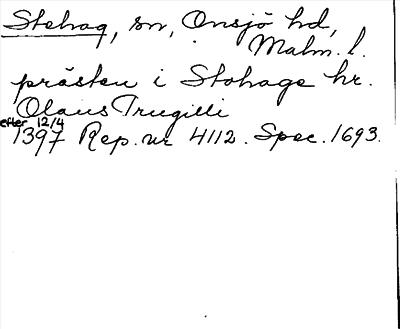 Stehag, sn, Onsjö hd,
Malm. l.
prästen i Stohags hr.
Olaus Trugilli
efter 12/4
1397 Rep. nr 4112. Spec. 1693.